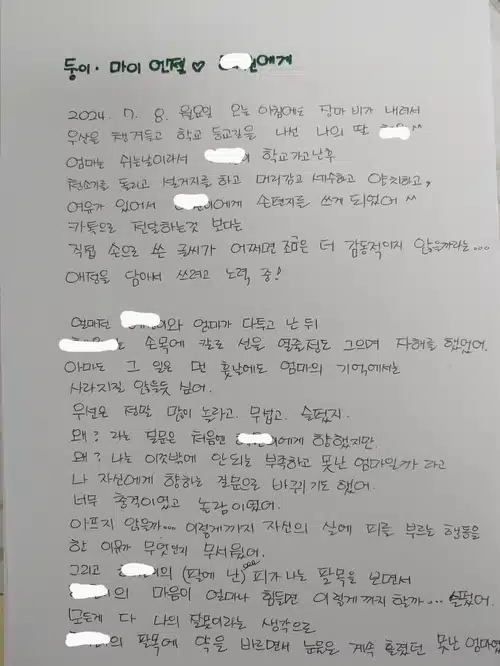 둥이 · 마이 언젤 ♡ 에게
2024. 7. 8. 월요일 오늘 아침에도 장마 비가 내려서
우산을 챙겨들고 학교 등교길을 나선 나의 딸 ^^
엄마는 쉬는날이라서 의 학교가고난후
청소기를 돌리고 설거지를 하고 머리감고 세수하고 양치하고,
여유가 있어서 에게 손편지를 쓰게 되었어 ^^
카톡으로 전달하는것 보다는
직접 손으로 쓴 글씨가 어쩌면 조금은 더 감동적이지 않을까라는...
애정을 담아서 쓰려고 노력 중!
얼마전 와 엄마가 다투고 난 뒤
는 손목에 칼로 선을 열줄정도 그으며 자해를 했었어.
아마도 그 일은 먼 훗날에도 엄마의 기억에서는
사라지질 않을듯 싶어.
우선은 정말 많이 놀라고. 무섭고. 슬펐지.
왜? 라는 질문은 처음엔 에게 향했지만
왜? 나는 이것밖에 안되는 부족하고 못난 엄마일까 라고
나 자신에게 향하는 질문으로 바뀌기도 했어.
너무 충격이였고 놀람이였어.
아프지 않을까... 이렇게까지 자신의 살에 피를 부르는 행동을
한 이유가 무엇인지 무서웠어.
그리고 의 (팔에 난) 피가 나는 팔목을 보면서
의 마음이 얼마나 힘들면 이렇게까지 할까... 슬펐어.
모든게 다 나의 잘못이라는 생각으로
의 팔목에 약을 바르면서 눈물을 계속 흘렸던 못난 엄마였